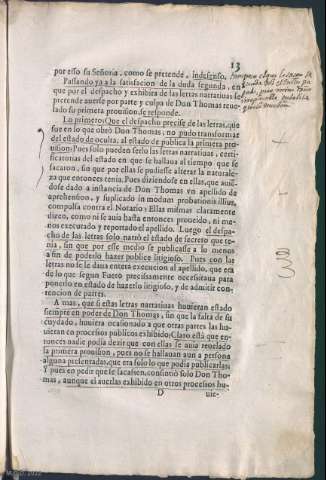 13
por esso su Señoria, como se pretende, indefenso.
Passando ya a la satisfacion de la duda segunda, en
que por el despacho y exhibita de las letras narratiuas se
pretende auerse por parte y culpa de Don Thomas reue-
lado su primera prouision, se responde.
Lo primero: Que el despacho precisse de las letras, que
fue en lo que obrò Don Thomas, no pudo transformar
del estado de oculta, al estado de publica la primera pro-
uision: Pues solo pueden serlo las letras narratiuas, certi-
ficatorias del estado en que se hallaua al tiempo que se
sacaron, sin que por ellas se pudiesse alterar la naturale-
za que entonces tenia. Pues diziendose en ellas, que auié-
dose dado a instancia de Don Thomas vn apellido de
aprehension, y suplicado in modum probationis illius,
compulsa contra el Notario: Ellas mismas claramente
dizen, como ni se auia hasta entonces proueido, ni me-
nos executado y reportado el apellido. Luego el despa-
cho de las letras solo narrò el estado de secreto que te-
nia, sin que por esse medio se publicasse a lo menos
a fin de poderlo hazer publico litigioso. Pues con las
letras no se le daua entera execucion al apellido, que era
de lo que segun Fuero precissamente necessitaua para
ponerlo en estado de hazerlo litigioso, y de admitir con-
currencion de partes.
A mas, que si estas letras narratiuas huuieran estado
siempre en poder de Don Thomas, sin que la falta de su
cuydado, huuiera ocasionado a que otras partes las hu-
uieran en processos publicos exhibido; Claro està que en-
tonces nadie podia dezir que con ellas se auia reuelado
la primera prouision, pues no se hallauan aun a persona
alguna presentadas, que era solo lo que podia publicarlas
Y pues en pedir que se sacassen, consintiò solo Don Tho-
mas, aunque el auerlas exhibido en otros processos hu-
D
uie-